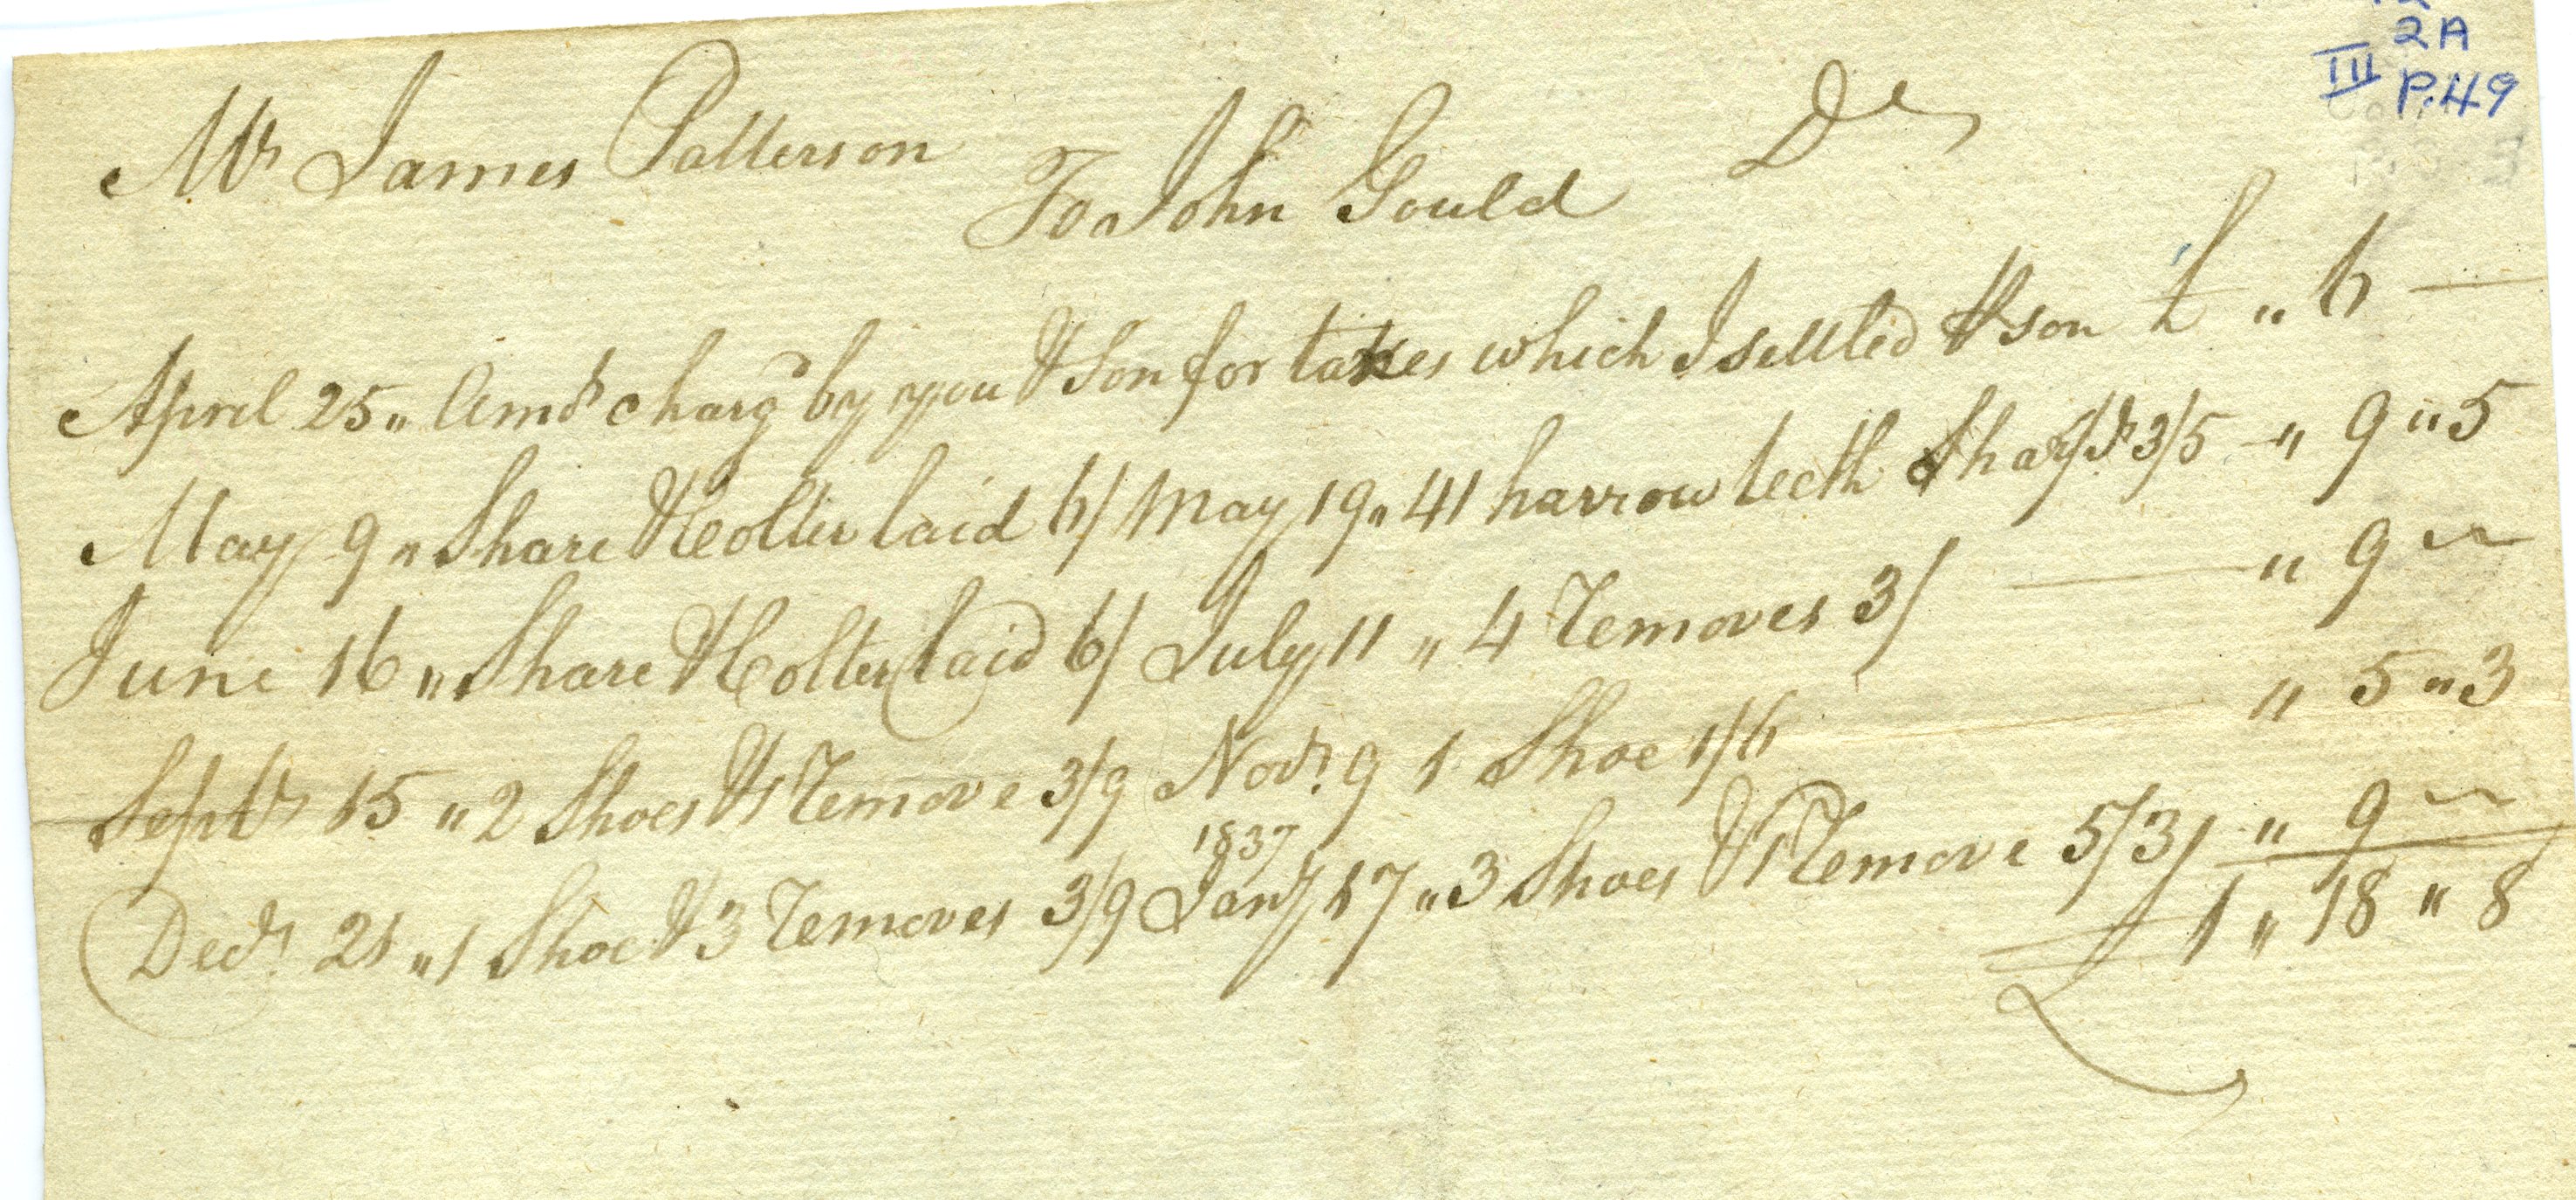 2A
III P.49
Mr James Patterson
To John Gould Dr
April 25 " Amt charg'd by you & Son for taxes which I settled & son £ " 6 —
May 9 " Share & Colter laid 6/ May 19 " 41 harrow teeth Sharpd 3/5 - " 9 " 5
June 16 " Share & Colter laid 6/ July 11 " 4 Removes 3/ — " 9 ~
Septr 15 " 2 Shoes & 1 Remove 3/9 Novr 9 1 Shoe 1/6 " 5 " 3
1837
Decr 21 " 1 Shoe & 3 Removes 3/9 Jany 17 " 3 Shoes & 1 Remove 5/3 / - " 9 ~
£ 1 " 18 " 8